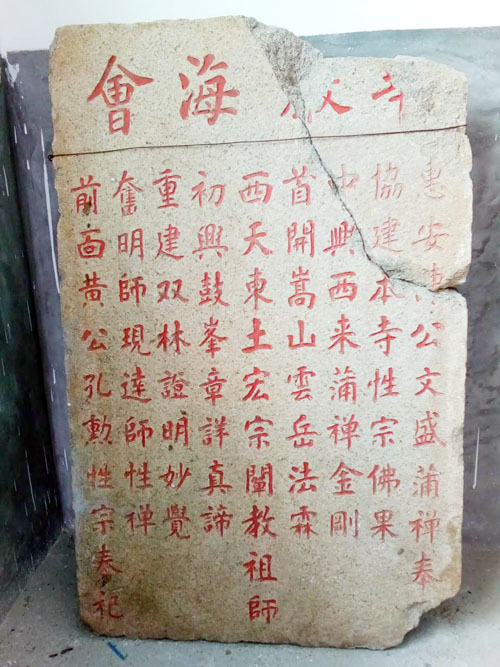 海會
惠安公文盛蒲禪奉
協建本寺性宗佛果
中興西来蒲禪金剛
首開嵩山雲岳法霖
西天東土宏宗闡教祖師
初興鼓峯章詳真諦
重建双林證明妙覺
奮明師現達師性禪
前靣黄公孔勳性宗奉祀